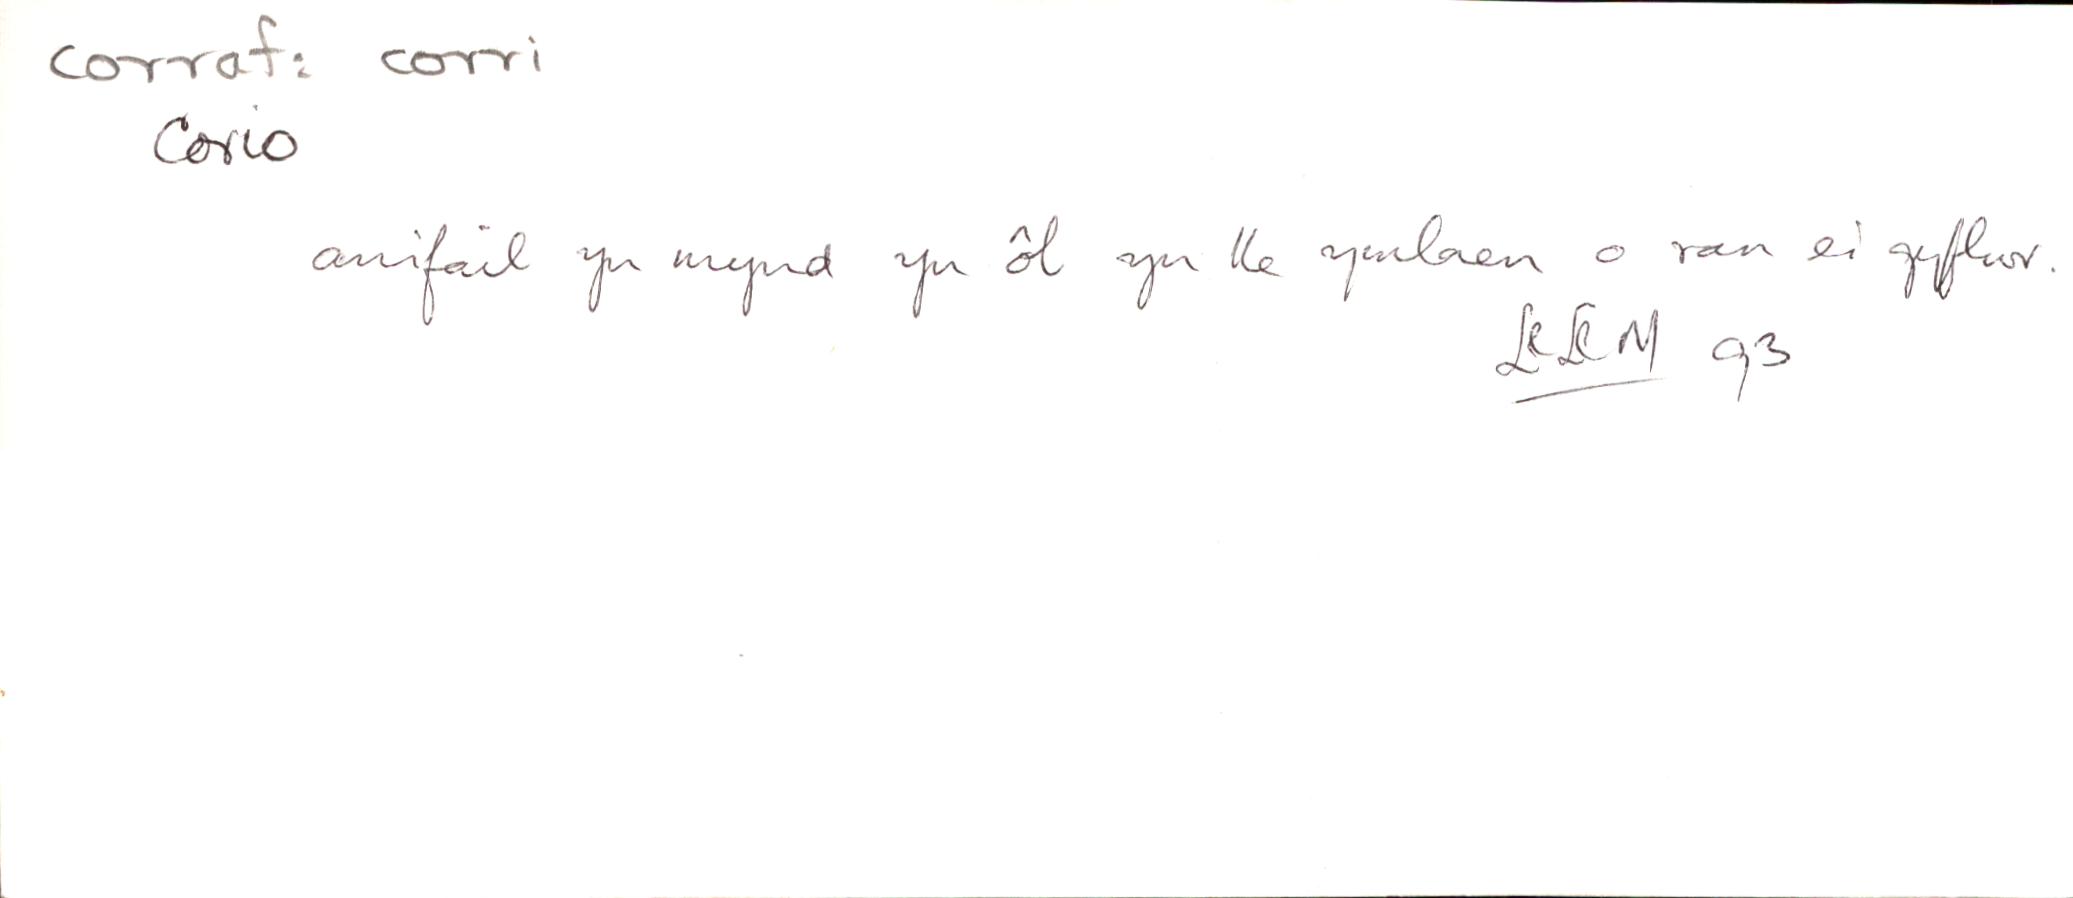 corraf: corri
Corio
anifail yn mynd yn ôl yn lle ymlaen o ran ei gyflwr.
LlLlM 93